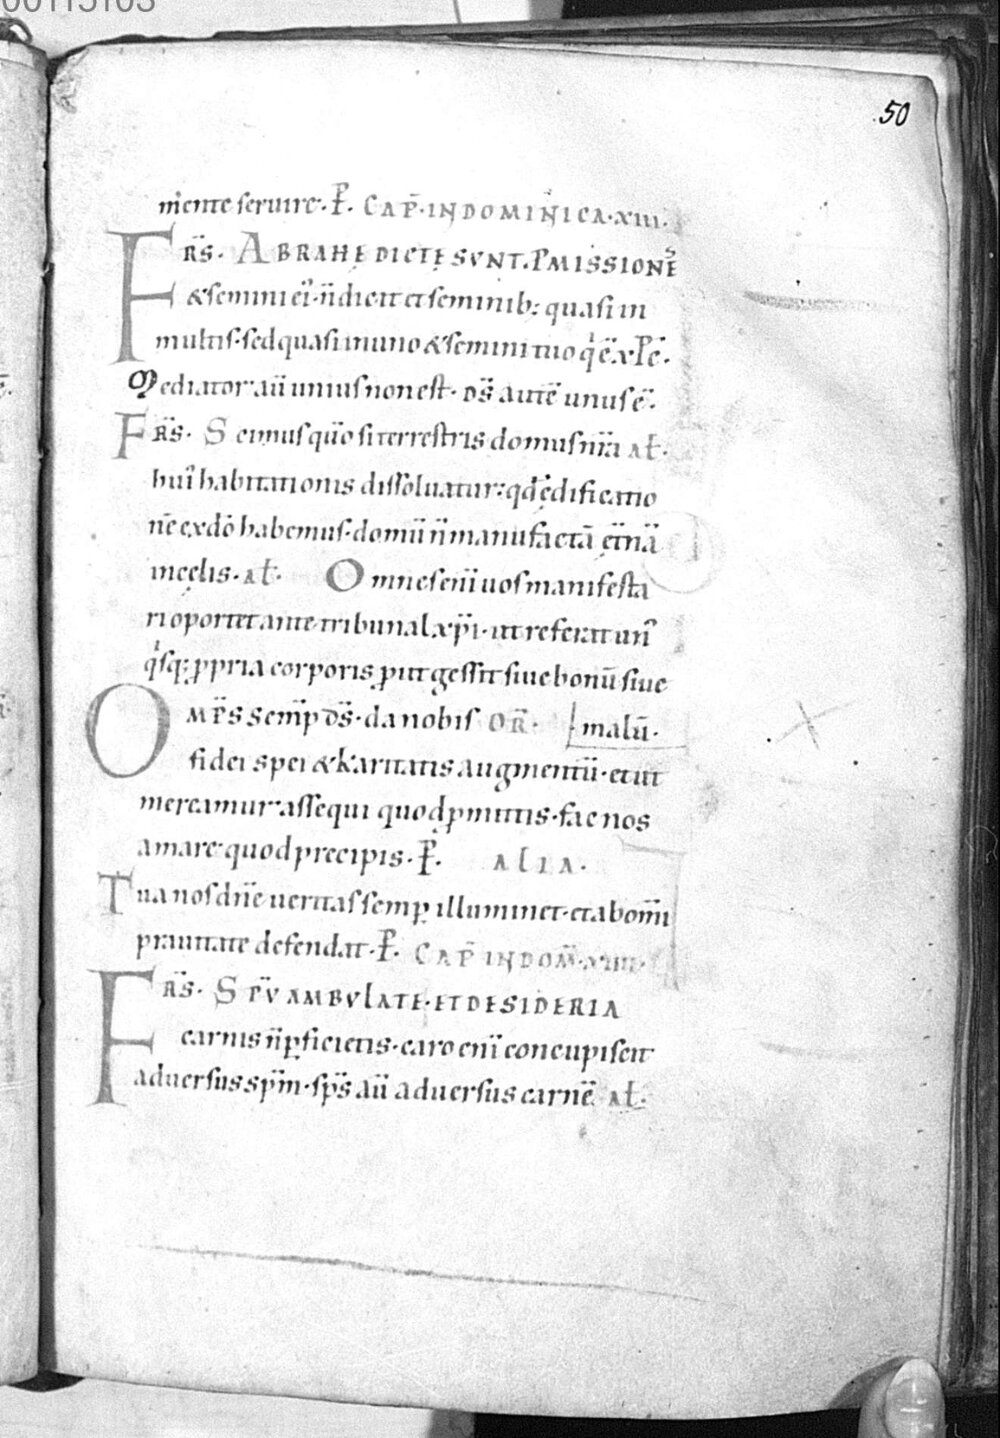 00115103
50
m̅ente seruire· P̅. CAP̅· IN DOMINICA· XIII·
FR̅S· ABRAHE DICTE SVNT· P̱MISSIONE᷒
& semini ei᷒· n̅ dicit et seminib; quasi in
multis· sed quasi in uno & semini tuo qͥ ē xp̅c̅·
Mediator au̅ unius non est· d̅s̅ aute̅ unus e̅·
FR̅S· Scimus qm̅o si terrestris domus nr̅a at̅·
hui᷒ habitationis dissoluatur· qd̅ ędificatio
ne̅ ex d̅o habemus· domu̅ n̅ manu facta̅ ęt̅na̅
in cęlis· at̅· Omnes eni̅ uos manifesta
ri oportet ante tribunal xp̅i· ut referat un᷒
qͥsq; p̱pria corporis p̱ut gessit siue bonu̅ siue
OMP̅S semp̅ d̅s̅· da nobis OR̅· malu̅·
fidei spei & karitatis augmentu̅· et ut
mereamur assequi quod p̱mittis· fac nos
amare quod precipis· P̅. ALIA·
Tua nos dn̅e ueritas semp̱ illuminet· et ab om̅i
prauitate defendat· P̅. CAP̅ IN DOM̅· XIIII·
FR̅S· SPV̅ AMBVLATE· ET DESIDERIA
carnis n̅ p̱ficietis· caro eni̅ concupiscit
aduersus sp̅m· sp̅s au̅ aduersus carne̅ at̅·